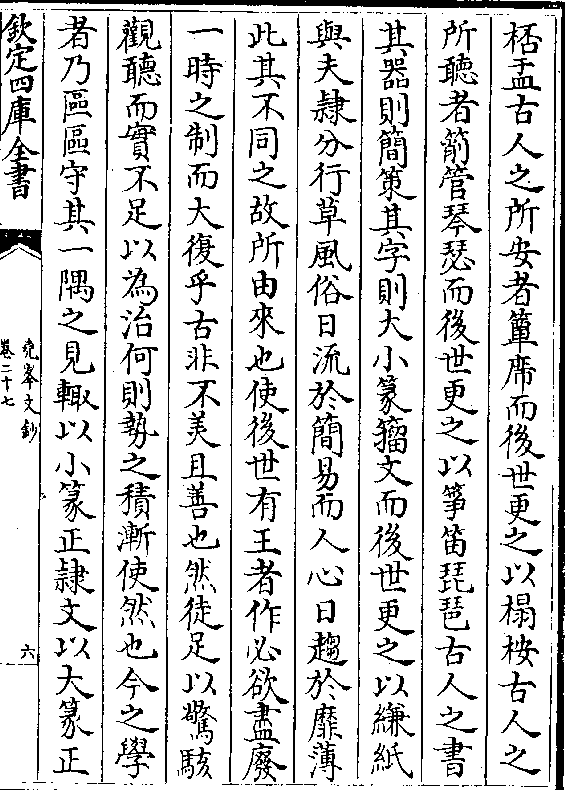 桮盂古人之所安者簟席而後世更之以榻桉古人之
所聽者箾管琴瑟而後世更之以箏笛琵琶古人之書
其器則簡策其字則大小篆籀文而後世更之以縑紙
與夫隸分行草風俗日流於簡易而人心日趨於靡薄
此其不同之故所由來也使後世有王者作必欲盡廢
一時之制而大復乎古非不美且善也然徒足以驚駭
觀聽而實不足以為治何則勢之積漸使然也今之學
者乃區區守其一隅之見輙以小篆正隸文以大篆正
欽定四庫全書
堯峯文鈔
卷二十七
六